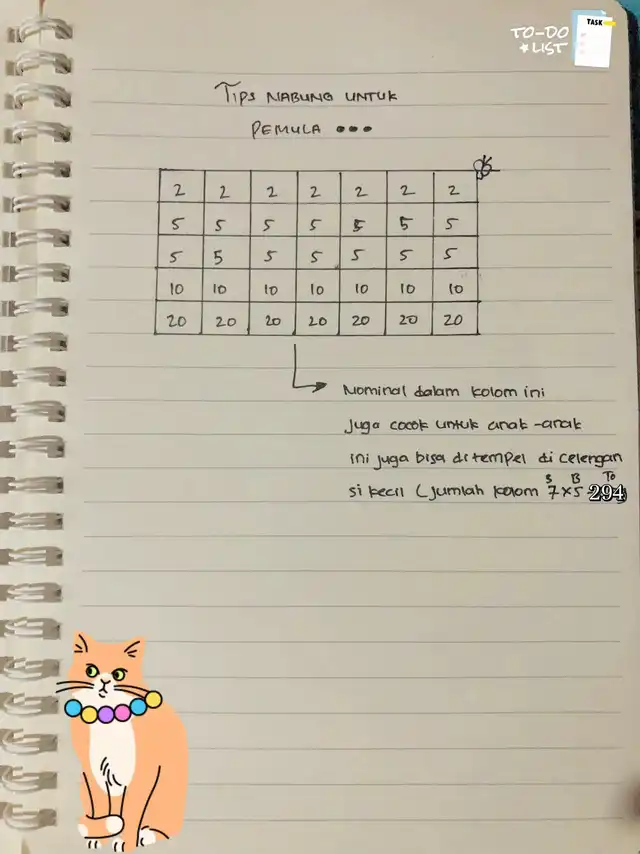 TO-DO
LIST
TASK
TIPS NABUNG UNTUK
PEMULA •••
2 2 2 2 2 2 2
5 5 5 5 5 5 5
5 5 5 5 5 5 5
10 10 10 10 10 10 10
20 20 20 20 20 20 20
Nominal dalam kolom ini
juga cocok untuk anak-anak
ini juga bisa di tempel di celengan
S B To
si kecil (jumlah kolom 7x5 294